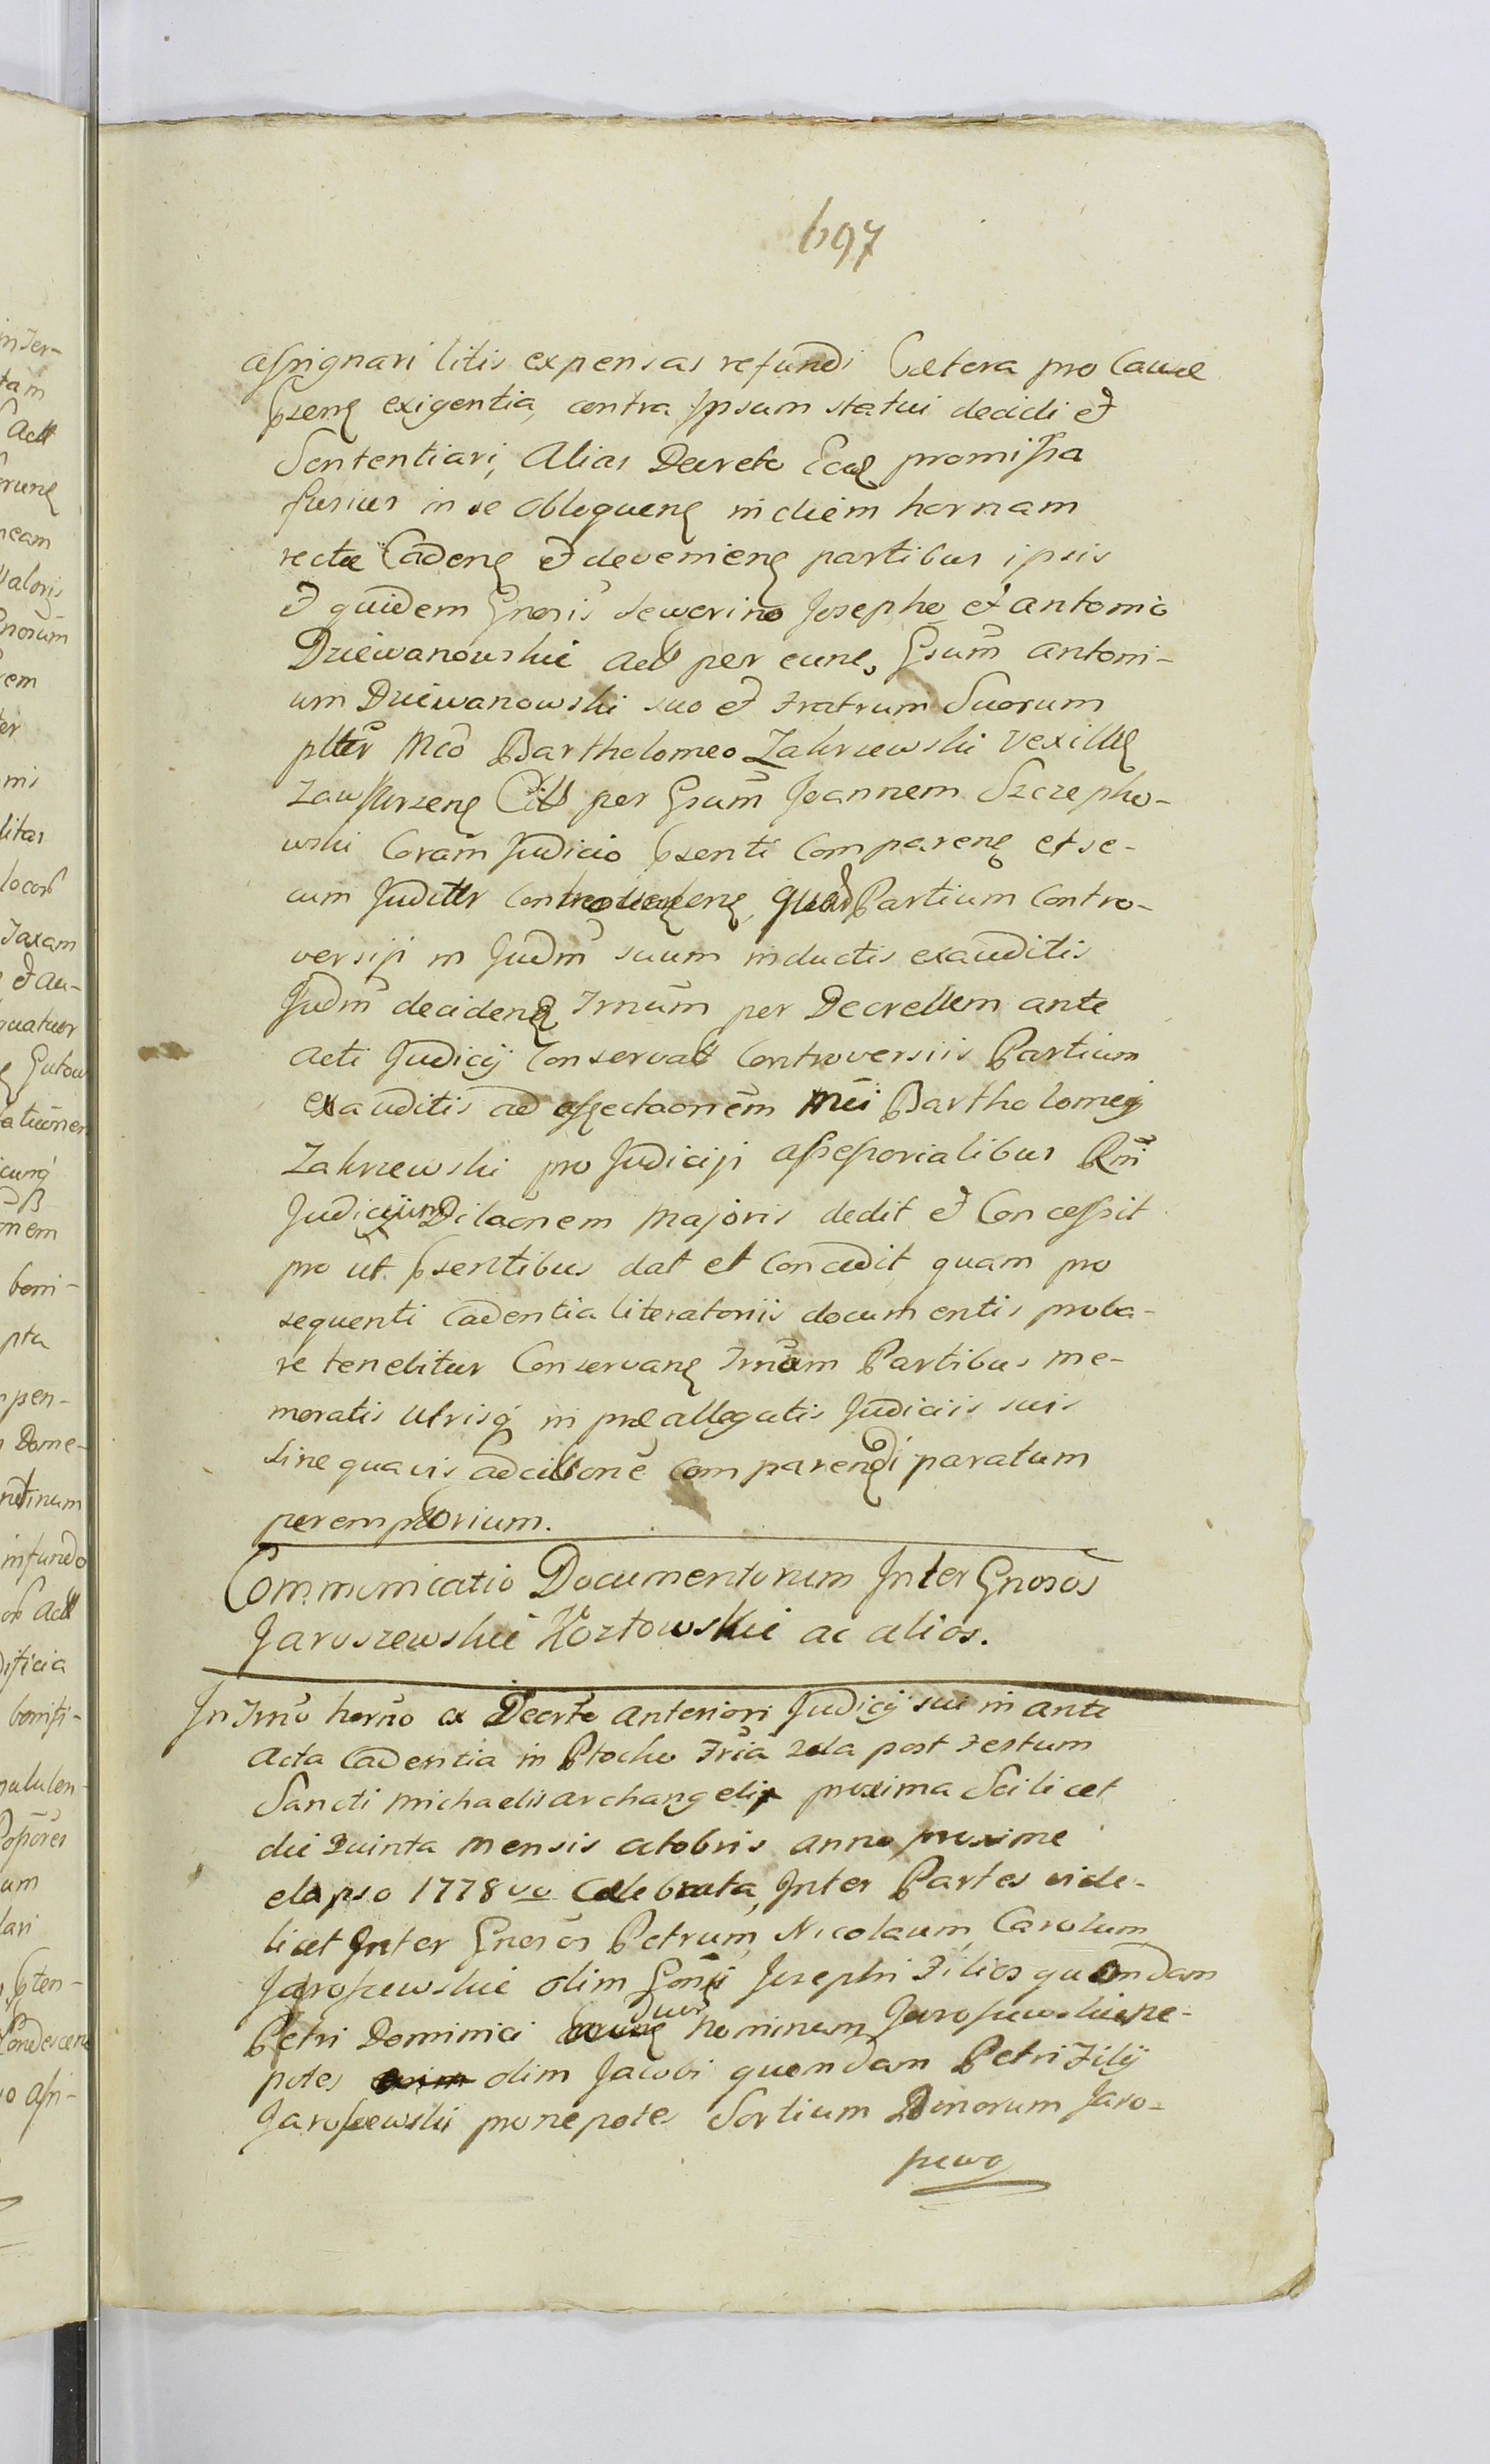 697
assignari litis expensas refundi Caetera pro Causae
pzenς exigentia, contra Ipsum statui decidi et
Sententiari, Alias Decreto Eodς promissa
fusius in se obloquenς in diem hornam
rectae Cadenς et devenienς partibus ipsis
et quidem Gnosis Sewerino Josepho et antonio
Dziewanowskie actt per eunς Gsum antoni-
um Dziewanowski suo et Fratrum Suorum
plter Mco Bartholomeo Zakrzewski Vexillς
Zawskrzenς Citt per Gsum Joannem Szczepko-
wski Coram Judicio psenti Comparenς et se-
cum Juditter Controvertenς, quar Partium Contro-
versiji in Judm suum inductis exauditis
Judm decidenς Trnum per Decrettum ante
acti Judicij Conservatt Controversiis Partium
exauditis ad affectaonem Mci Bartholomej
Zakrzewski pro Judiciji assessorialibus Rni
Judicijunς Dilaonem majoris dedit et Concessit
pro ut psentibus dat et Concedit quam pro
sequenti Cadentia literatoriis documentis proba-
re tenebitur Conservanς Trnum Partibus me-
moratis utrisq in praeallegatis Judiciis suis
sine quavis adcittone Comparendi paratum
peremptorium.
Communicatio Documentorum Inter Gnosos
Jaroszewskie Kozłowskie ac alios.
In Trno horno ex Decrto anteriori Judicij sui in ante
acta Cadentia in Płocko Fria 2da post Festum
Sancti Michaelis archangeli proxima Scilicet
die Quinta Mensis octobris anno proxime
elapso 1778vo Celebrata, Inter Partes vide-
licet Inter Gnosos Petrum, Nicolaum, Carolum
Jaroszewskie olim Gnosi Josephi Filios quondam
Petri Dominici duorς Nominum Jaroszewskie ne-
potes olim Jacobi quondam Petri Filij
Jaroszewski pronepotes Sortium Bonorum Jaro-
szewo